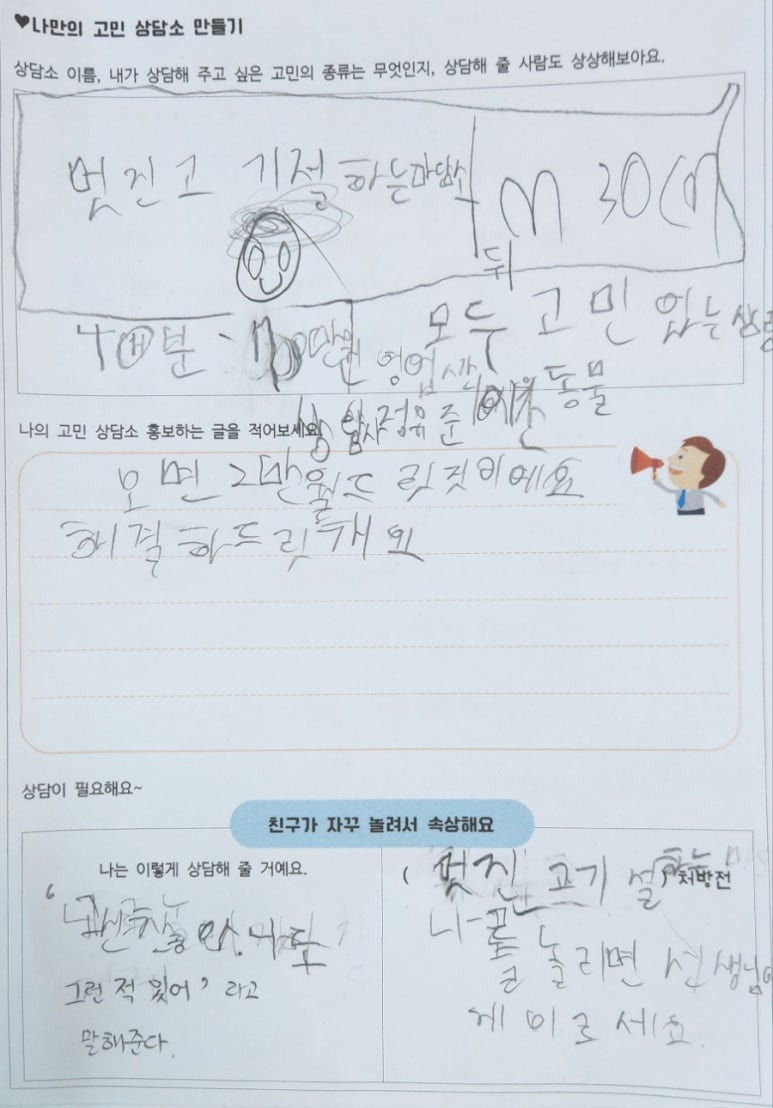 ♥나만의 고민 상담소 만들기
상담소 이름, 내가 상담해 주고 싶은 고민의 종류는 무엇인지, 상담해 줄 사람도 상상해보아요.
멋진고 기절하는마담소 M 30cm
뒤
모두 고민 있는 사람
분 만원 영업시간 동물
나의 고민 상담소 홍보하는 글을 적어보세요
오면 2만원드릿것이에요
해결하드릿개요
상담이 필요해요~
친구가 자꾸 놀려서 속상해요
나는 이렇게 상담해 줄 거예요.
그런 적 있어' 라고
말해준다.
( 멋진 고기 설 ) 처방전
놀리면 선생님
에 이르세요.